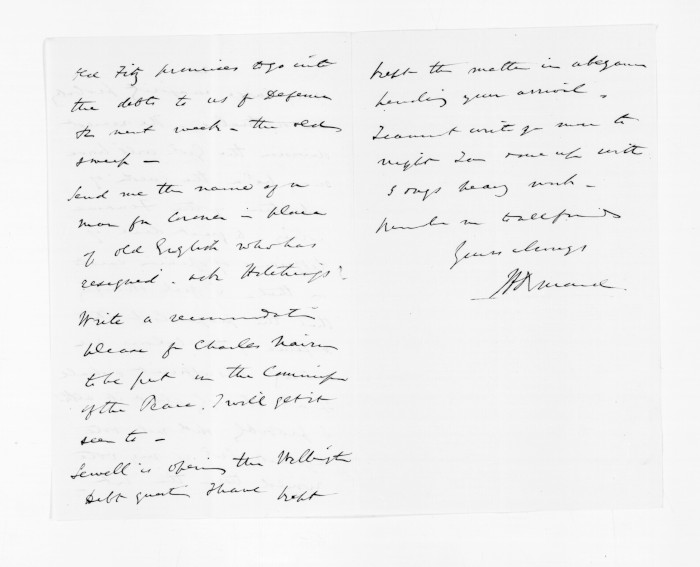 Old Fitz promises to go into
the debts to us of Defence
&c next week - the old
sweep -
Send me the name of a
man for Coroner in place
of old English who has
resigned. ask Hitchings?
Write a recommendation
please for Charles Nairn
to be put in the Commission
of the Peace. I will get it
seen to -
Sewell is opening the Wellington
Debt question I have kept
kept the matter in abeyance
pending your arrival.
I cannot write you more to
night I am done up with
3 days heavy work -
to all friends
Yours always